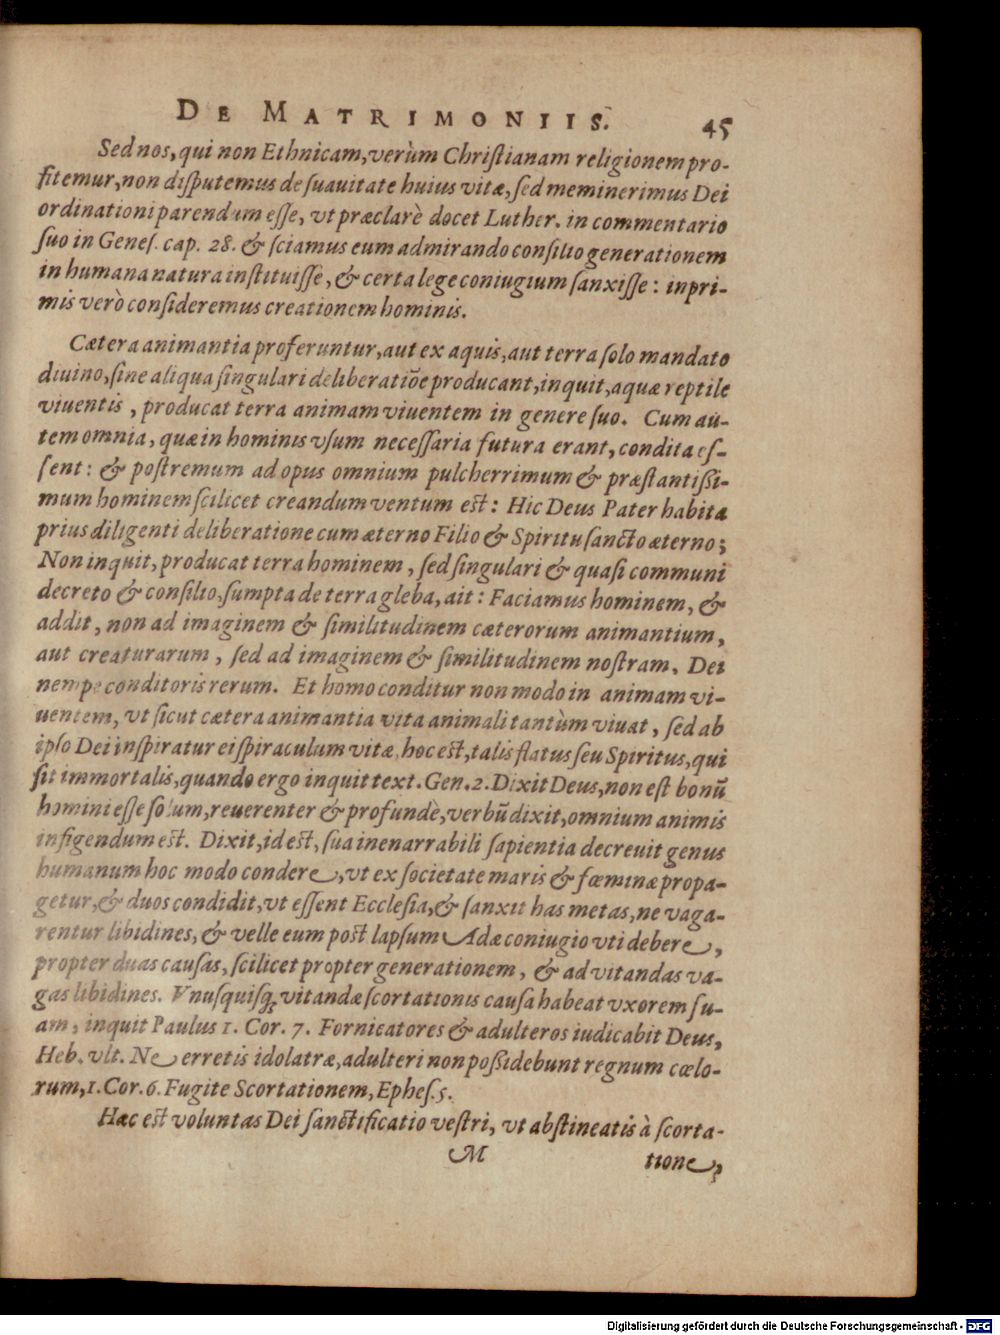 DE MATRIMONIIS. 45
Sed nos, qui non Ethnicam, verùm Chriſtianam religionem pro-
fitemur, non diſputemus de ſuauitate huius vitæ, ſed meminerimus Dei
ordinationi parendum eſſe, vt præclarè docet Luther. in commentario
ſuo in Geneſ. cap. 28. & ſciamus eum admirando conſilio generationem
in humana natura inſtituiſſe, & certa lege coniugium ſanxiſſe: inpri-
mis verò conſideremus creationem hominis.
Cætera animantia proferuntur, aut ex aquis, aut terra ſolo mandato
diuino, ſine aliqua ſingulari deliberatiōe producant, inquit, aquæ reptile
viuentis, producat terra animam viuentem in genere ſuo. Cum au-
tem omnia, quæ in hominis vſum neceſſaria futura erant, condita eſ-
ſent: & poſtremum ad opus omnium pulcherrimum & præſtantißi-
mum hominem ſcilicet creandum ventum eſt: Hic Deus Pater habita
prius diligenti deliberatione cum æterno Filio & Spiritu ſancto æterno;
Non inquit, producat terra hominem, ſed ſingulari & quaſi communi
decreto & conſilio, ſumpta de terra gleba, ait: Faciamus hominem, &
addit, non ad imaginem & ſimilitudinem cæterorum animantium,
aut creaturarum, ſed ad imaginem & ſimilitudinem noſtram. Dei
nempe conditoris rerum. Et homo conditur non modo in animam vi-
uentem, vt ſicut cætera animantia vita animali tantùm viuat, ſed ab
ipſo Dei inſpiratur ei ſpiraculum vitæ, hoc eſt, talis flatus ſeu Spiritus, qui
ſit immortalis, quando ergo inquit text. Gen. 2. Dixit Deus, non eſt bonū
homini eſſe ſolum, reuerenter & profundè, verbū dixit, omnium animis
infigendum eſt. Dixit, id eſt, ſua inenarrabili ſapientia decreuit genus
humanum hoc modo condere, vt ex ſocietate maris & fœminæ propa-
getur, & duos condidit, vt eſſent Eccleſia, & ſanxit has metas, ne vaga-
rentur libidines, & velle eum poſt lapſum Adæ coniugio vti debere,
propter duas cauſas, ſcilicet propter generationem, & ad vitandas va-
gas libidines. Vnuſquiſq; vitandæ ſcortationis cauſa habeat vxorem ſu-
am, inquit Paulus 1. Cor. 7. Fornicatores & adulteros iudicabit Deus,
Heb. vlt. Ne erretis idolatræ, adulteri non poßidebunt regnum cœlo-
rum, 1. Cor. 6. Fugite Scortationem, Epheſ. 5.
Hæc eſt voluntas Dei ſanctificatio veſtri, vt abſtineatis à ſcorta-
M tione,
Digitalisierung gefördert durch die Deutsche Forschungsgemeinschaft - DFG